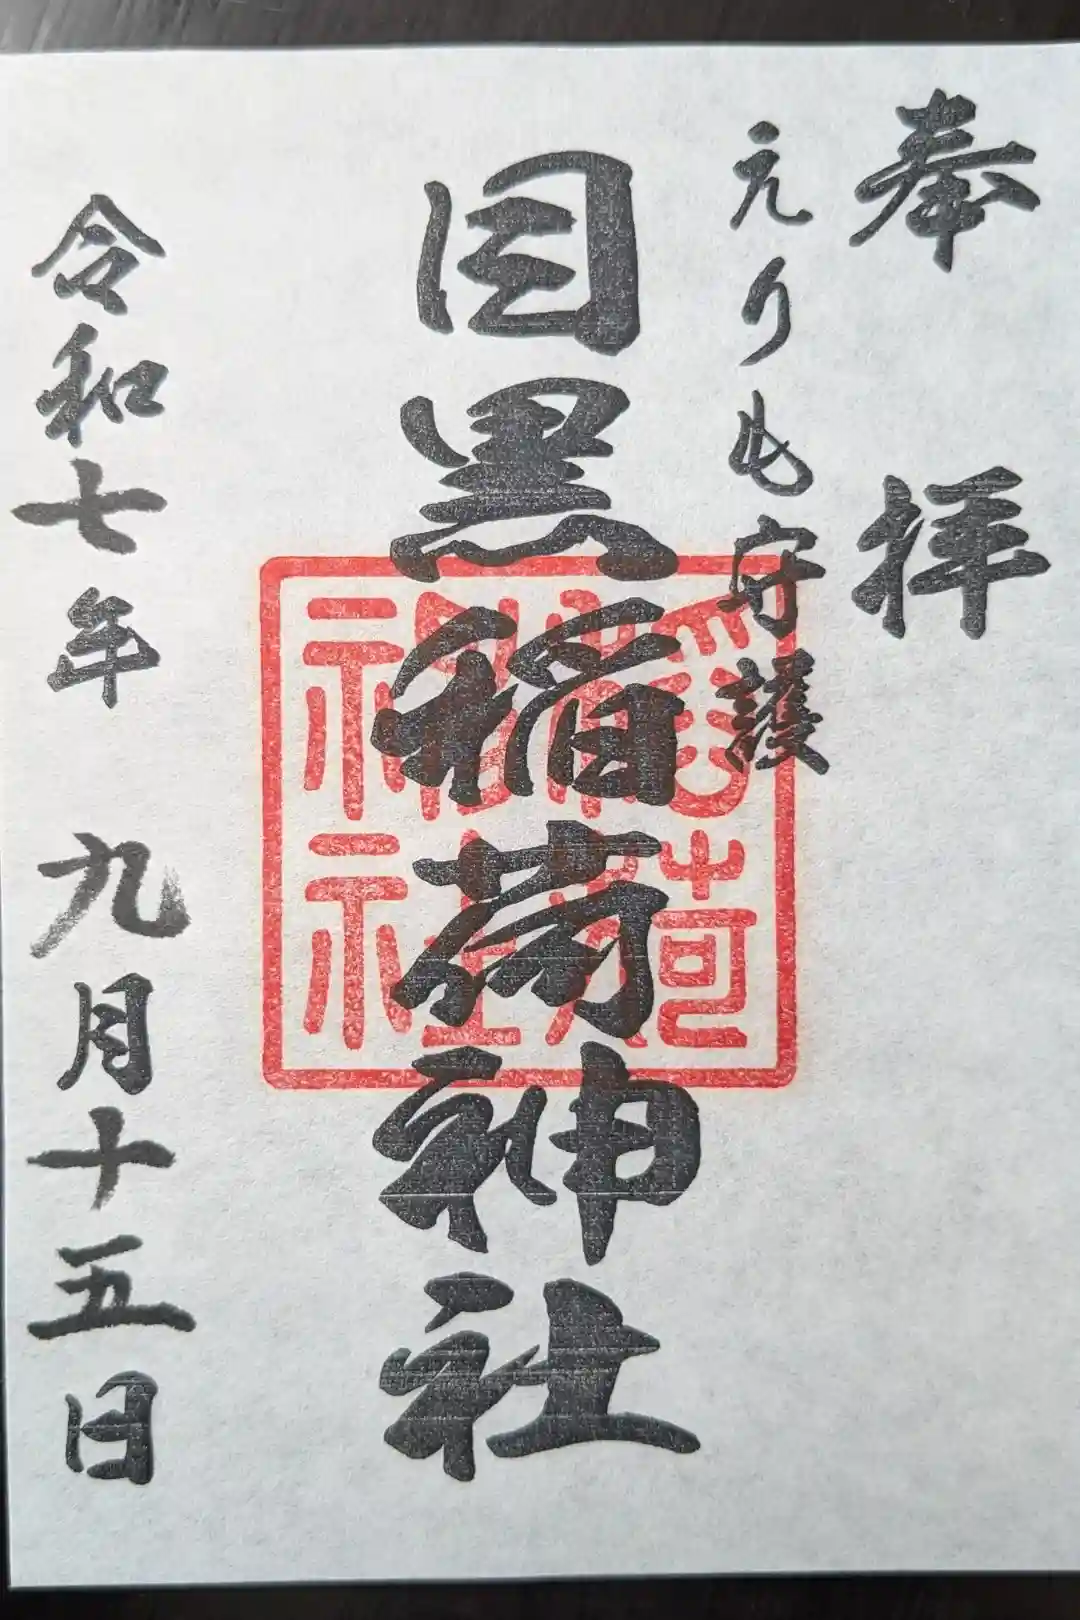 奉拝
えりも守護
目黒稲荷神社
神社
令和七年 九月十五日